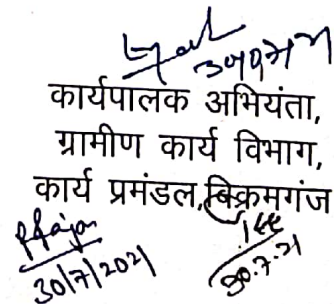 कार्यपालक अभियंता,
ग्रामीण कार्य विभाग,
कार्य प्रमंडल, बिक्रमगंज
30/7/2021
30.7.21